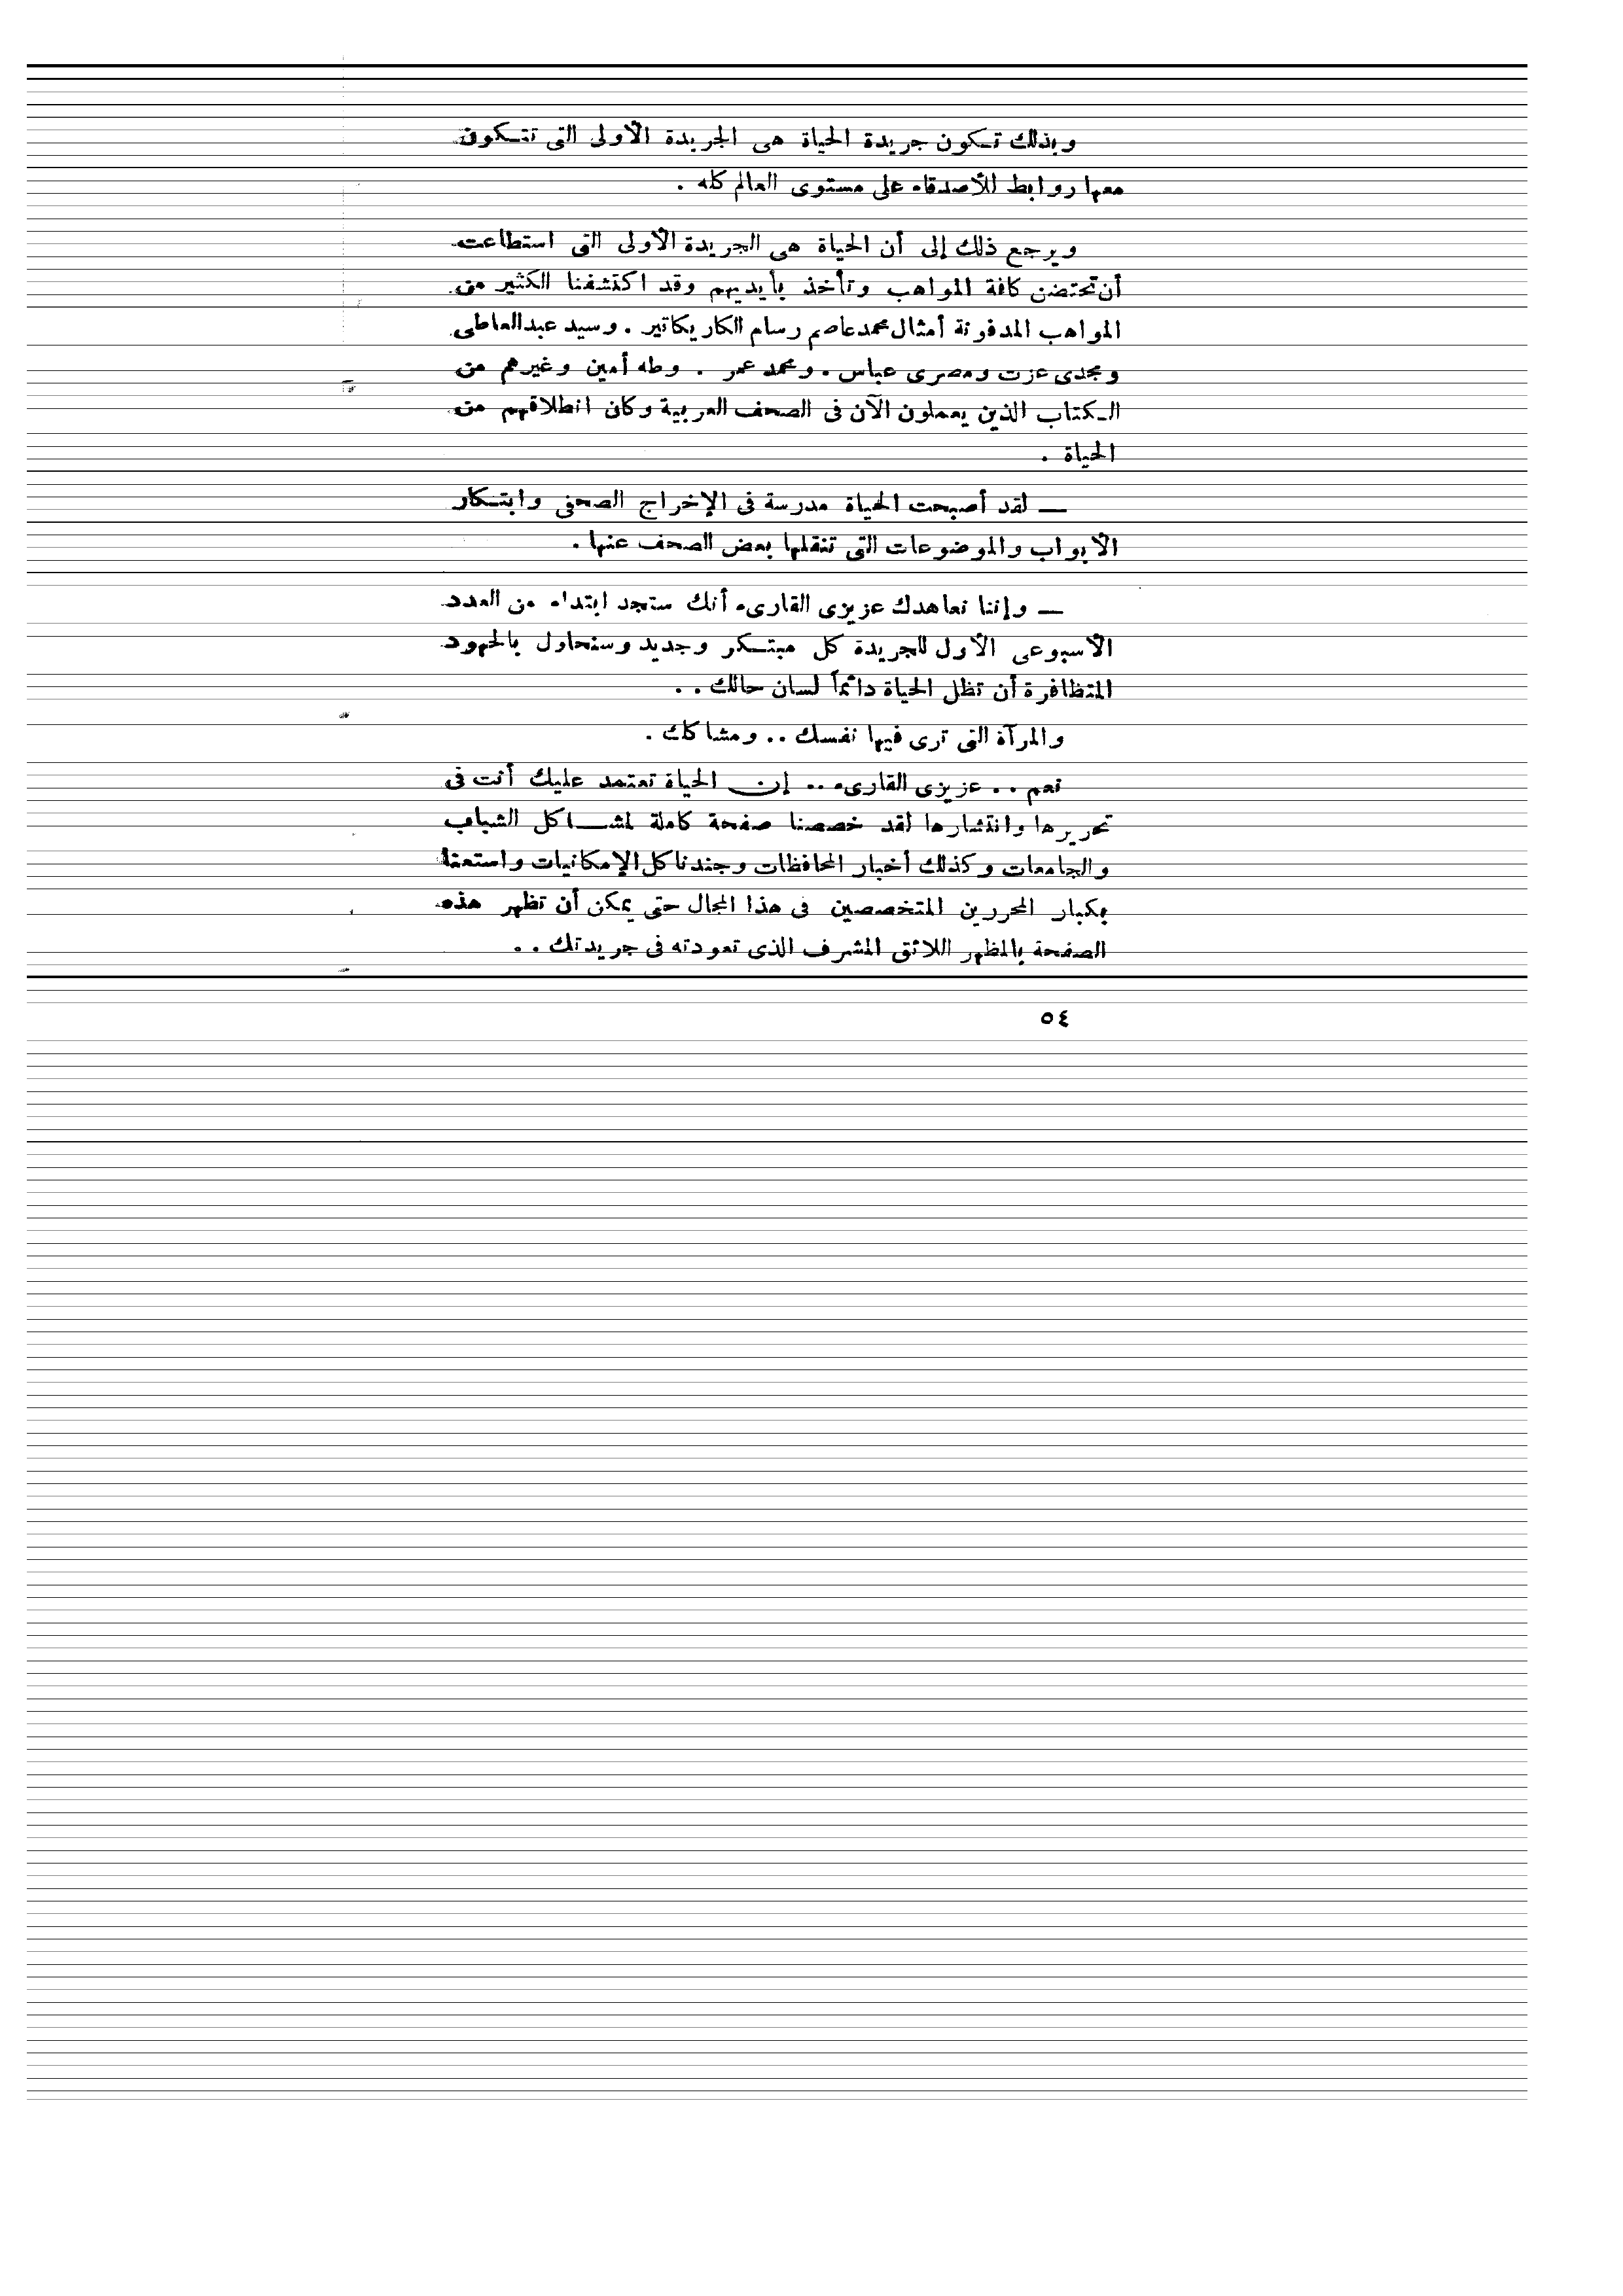 وبذلك تكون جريدة الحياة هى الجريدة الأولى التى تتكون
معها روابط للأصدقاء على مستوى العالم كله .
ويرجع ذلك إلى أن الحياة هى الجريدة الأولى التى استطاعت
أن تحتضن كافة المواهب وتأخذ بأيديهم وقد اكتشفنا الكثير من
المواهب المدفونة أمثال محمد عاصم رسام الكاريكاتير . وسيد عبد العاطى
ومجدى عزت ومصرى عباس . ومحمد عمر . وطه أمين وغيرهم من
الكتاب الذين يعملون الآن فى الصحف العربية وكان انطلاقهم من
الحياة .
— لقد أصبحت الحياة مدرسة فى الإخراج الصحفى وابتكار
الأبواب والموضوعات التى تنقلها بعض الصحف عنها .
— وإننا نعاهدك عزيزى القارىء أنك ستجد ابتداء من العدد
الأسبوعى الأول للجريدة كل مبتكر وجديد وسنحاول بالجهود
المتظافرة أن تظل الحياة دائماً لسان حالك . .
والمرآة التى ترى فيها نفسك . . ومشاكلك .
نعم . . عزيزى القارىء . . إن الحياة تعتمد عليك أنت فى
تحريرها وانتشارها لقد خصصنا صفحة كاملة لمشاكل الشباب
والجامعات وكذلك أخبار المحافظات وجندنا كل الإمكانيات واستعنا
بكبار المحررين المتخصصين فى هذا المجال حتى يمكن أن تظهر هذه
الصفحة بالمظهر اللائق المشرف الذى تعودته فى جريدتك . .
٥٤